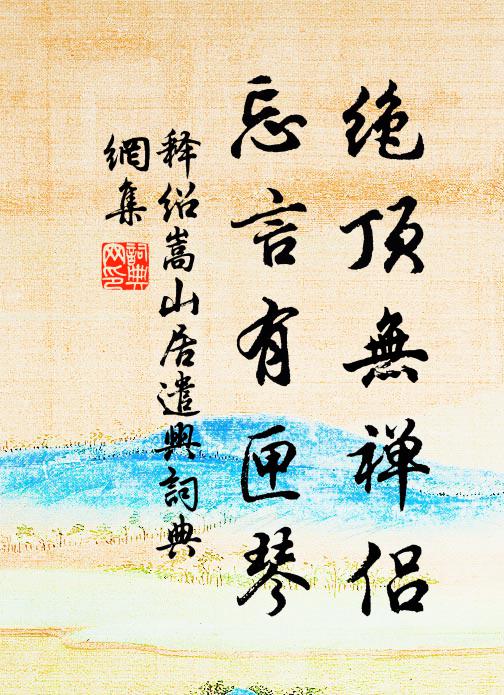 绝顶無禅侣
忘言有匣琴
释绍嵩山居遣興詞典
網集
詞典
网印